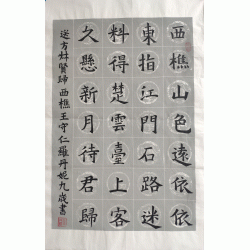 西樵山色遠依依
東指江門石路迷
料得楚雲臺上客
久懸新月待君歸
送方叔賢歸西樵王守仁羅丹妮九歲書